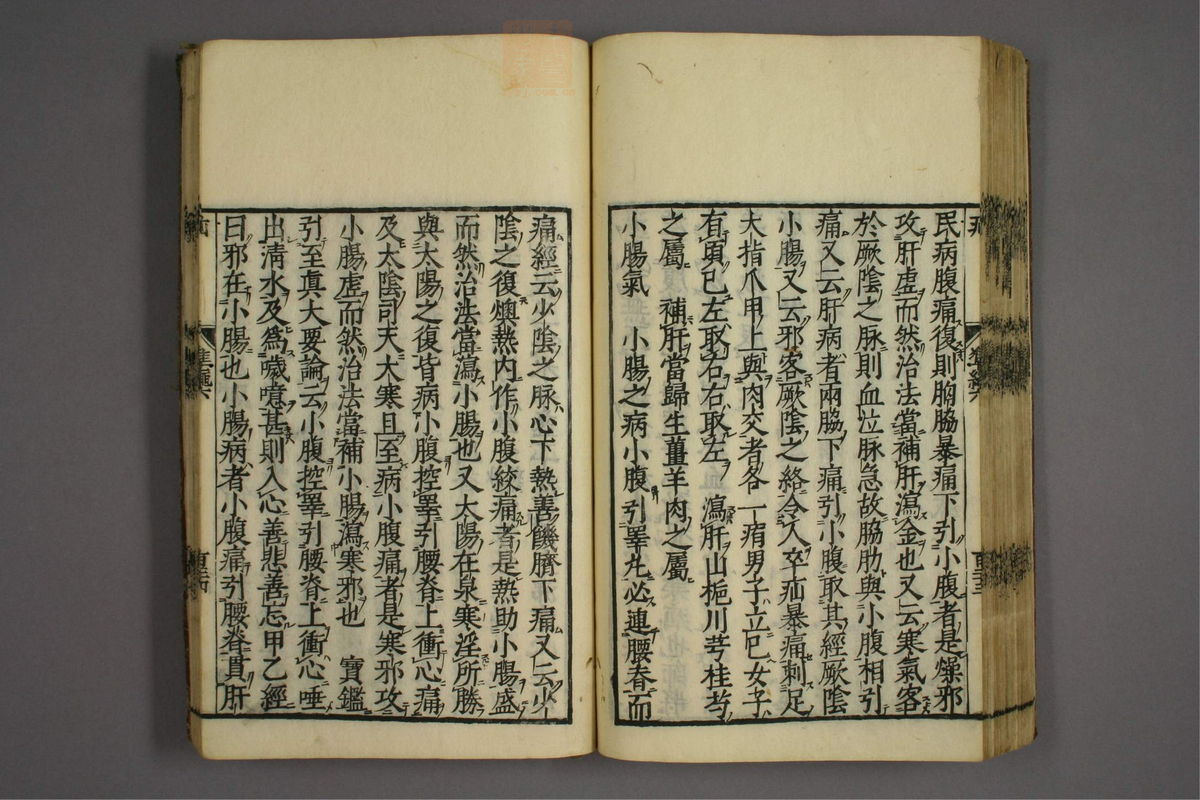 民病腹痛復則胸脇暴痛下引小腹者是燥邪
攻肝虛而然治法當補肝瀉金也又云寒氣客
於厥陰之脉則血泣脉急故脇肋與小腹相引
痛又云肝病者兩脇下痛引小腹取其經厥陰
小腸又云邪客厥陰之絡令人卒疝暴痛刺足
大指爪甲上與肉交者各一痏男子立已女子
有頃已左取右右取左　瀉肝山梔川芎桂芍
之屬　補肝當歸生薑羊肉之屬
小腸氣　小腸之病小腹引睪丸必連腰脊而
痛經云少陰之脉心下熱善饑臍下痛又云少
陰之復燠熱內作小腹絞痛者是熱助小腸盛
而然治法當瀉小腸也又太陽在泉寒淫所勝
與太陽之復皆病小腹控睪引腰脊上衝心痛
及太陰司天大寒且至病小腹痛者是寒邪攻
小腸虛而然治法當補小腸瀉寒邪也　寶鑑
引至眞大要論云小腹控睪引腰脊上衝心唾
出清水及爲噦噫甚則入心善悲善忘甲乙經
曰邪在小腸也小腸病者小腹痛引腰脊貫肝